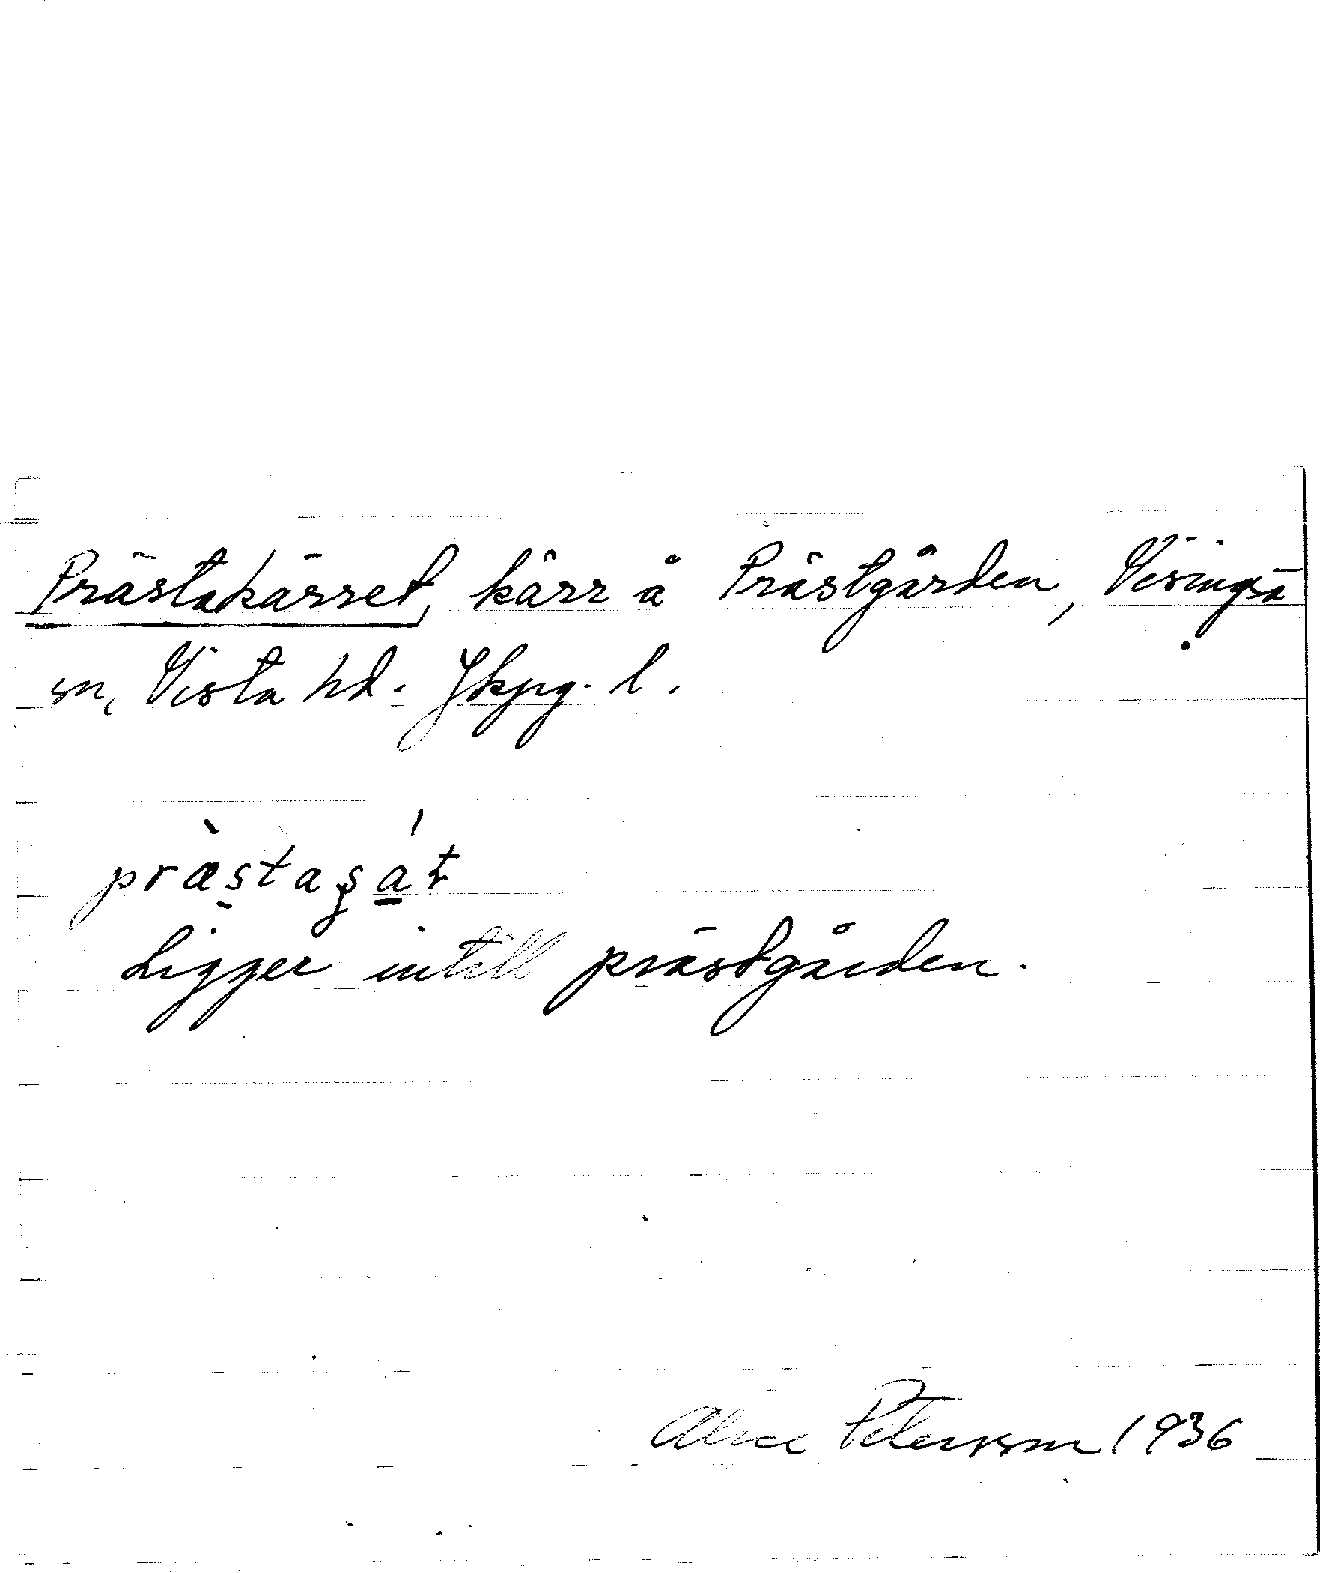 Prästakärret, kärr å Prästgården, Visingsö
sn, Vista hd. Jkpg. l.
præ̀staʂát
Ligger intill prästgården.
Alice Petersson 1936